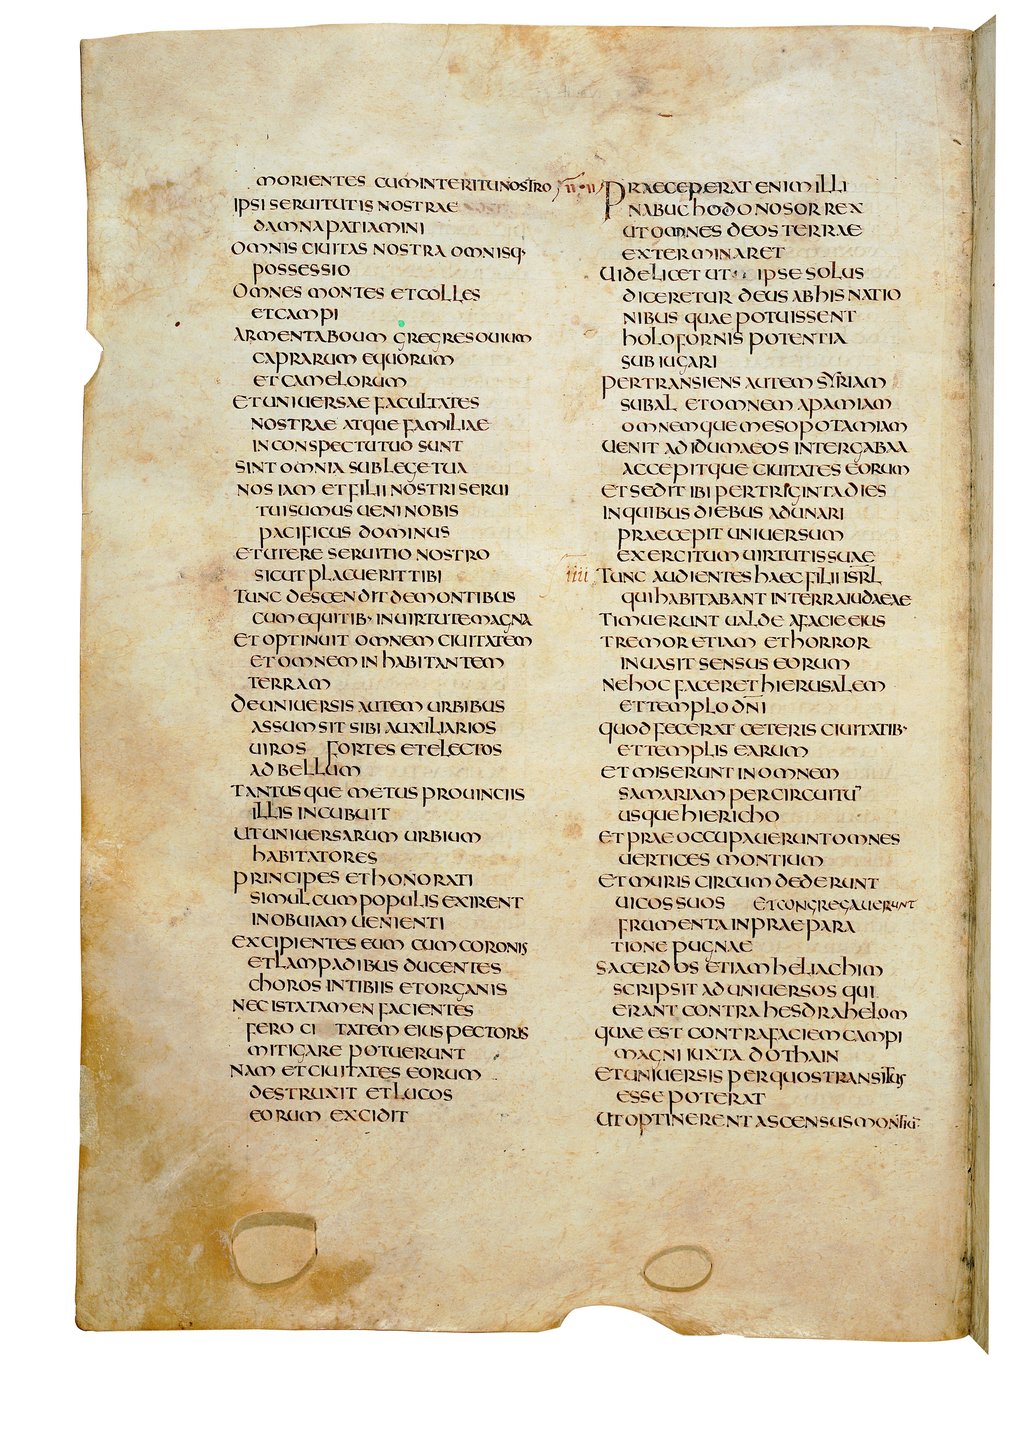 MORIENTES CUM INTERITU NOSTRO
IPSI SERUITUTIS NOSTRAE
DAMNA PATIAMINI
OMNIS CIUITAS NOSTRA OMNISQ·
POSSESSIO
OMNES MONTES ET COLLES
ET CAMPI
ARMENTA BOUM GREGRES OUIUM
CAPRARUM EQUORUM
ET CAMELORUM
ET UNIUERSAE FACULTATES
NOSTRAE ATQUE FAMILIAE
IN CONSPECTU TUO SUNT
SINT OMNIA SUB LEGE TUA
NOS IAM ET FILII NOSTRI SERUI
TUI SUMUS UENI NOBIS
PACIFICUS DOMINUS
ET UTERE SERUITIO NOSTRO
SICUT PLACUERIT TIBI
TUNC DESCENDIT DE MONTIBUS
CUM EQUITIB· IN UIRTUTE MAGNA
ET OPTINUIT OMNEM CIUITATEM
ET OMNEM INHABITANTEM
TERRAM
DE UNIUERSIS AUTEM URBIBUS
ASSUMSIT SIBI AUXILIARIOS
UIROS FORTES ET ELECTOS
AD BELLUM
TANTUSQUE METUS PROUINCIIS
ILLIS INCUBUIT
UT UNIUERSARUM URBIUM
HABITATORES
PRINCIPES ET HONORATI
SIMUL CUM POPULIS EXIRENT
IN OBUIAM UENIENTI
EXCIPIENTES EUM CUM CORONIS
ET LAMPADIBUS DUCENTES
CHOROS IN TIBIIS ET ORGANIS
NEC ISTA TAMEN FACIENTES
FEROCI TATEM EIUS PECTORIS
MITIGARE POTUERUNT
NAM ET CIUITATES EORUM
DESTRUXIT ET LUCOS
EORUM EXCIDIT
PRAECEPERAT ENIM ILLI
NABUCHODONOSOR REX
UT OMNES DEOS TERRAE
EXTERMINARET
UIDELICET UT IPSE SOLUS
DICERETUR DEUS AB HIS NATIO
NIBUS QUAE POTUISSENT
HOLOFORNIS POTENTIA
SUBIUGARI
PERTRANSIENS AUTEM SYRIAM
SUBAL ET OMNEM APAMIAM
OMNEMQUE MESOPOTAMIAM
UENIT AD IDUMAEOS IN TERGABAA
ACCEPITQUE CIUITATES EORUM
ET SEDIT IBI PER TRIGINTA DIES
IN QUIBUS DIEBUS ADUNARI
PRAECEPIT UNIUERSUM
EXERCITUM UIRTUTIS SUAE
IIII TUNC AUDIENTES HAEC FILII ISRL
QUI HABITABANT IN TERRA IUDAEAE
TIMUERUNT UALDE A FACIE EIUS
TREMOR ETIAM ET HORROR
INUASIT SENSUS EORUM
NE HOC FACERET HIERUSALEM
ET TEMPLO DNI
QUOD FECERAT CETERIS CIUITATIB·
ET TEMPLIS EARUM
ET MISERUNT IN OMNEM
SAMARIAM PER CIRCUITU
USQUE HIERICHO
ET PRAEOCCUPAUERUNT OMNES
UERTICES MONTIUM
ET MURIS CIRCUMDEDERUNT
UICOS SUOS ET CONGREGAUERUNT
FRUMENTA IN PRAEPARA
TIONE PUGNAE
SACERDOS ETIAM HELIACHIM
SCRIPSIT AD UNIUERSOS QUI
ERANT CONTRA HESDRAHELOM
QUAE EST CONTRA FACIEM CAMPI
MAGNI IUXTA DOTHAIN
ET UNIUERSIS PER QUOS TRANSITUS
ESSE POTERAT
UT OPTINERENT ASCENSUS MONTIU